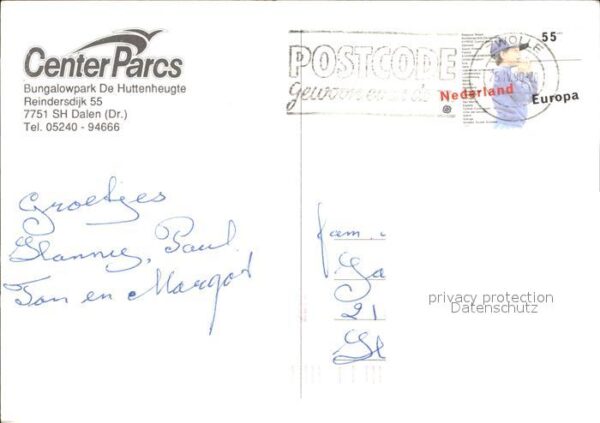 Center Parcs
Bungalowpark De Huttenheugte
Reindersdijk 55
7751 SH Dalen (Dr.)
Tel. 05240 - 94666
POSTCODE
gewoon
ZWOLLE
55
Nederland
Europa
Groetjes
Hanny, Paul
Ton en Margot
fam.
Ga
21
privacy protection
Datenschutz